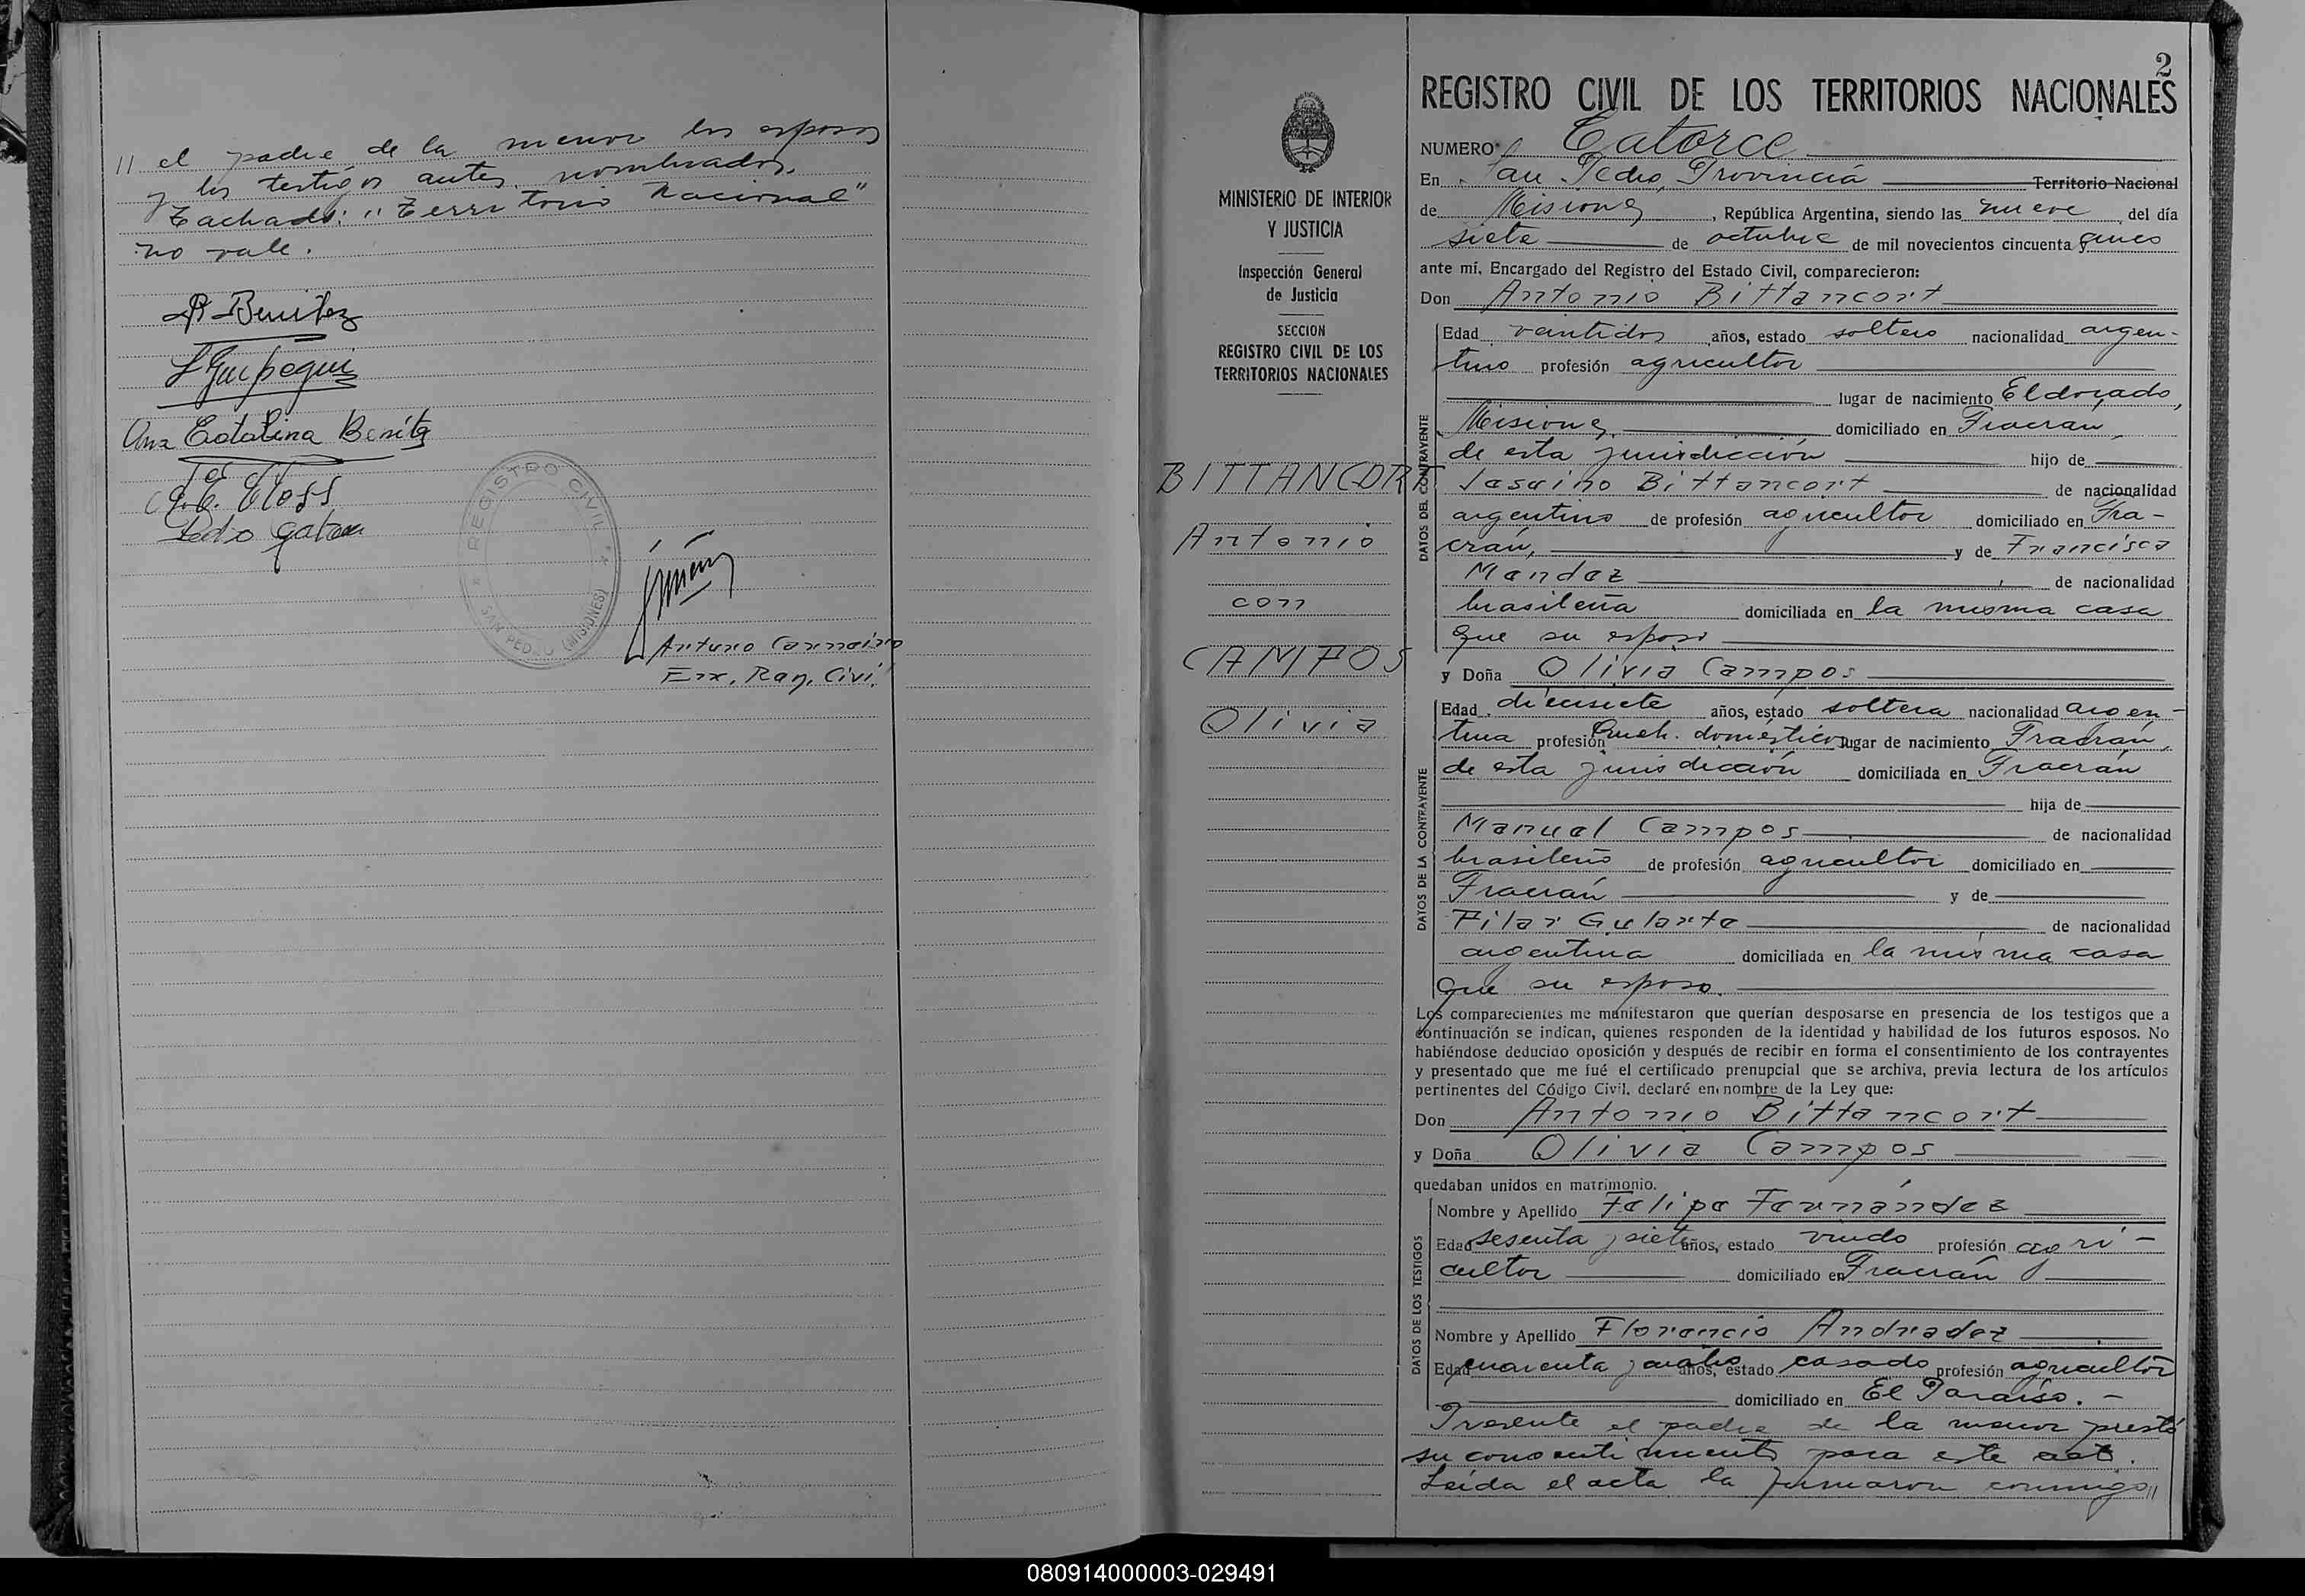 // el padre de la menor los esposos
y los testigos antes nombrados.
Tachado: "Territorio Nacional"
no vale.
R Benitez
Ana Catalina Benitez
C. E. Closs
Pedro
REGISTRO CIVIL
SAN PEDRO (MISIONES)
Arturo
Enc. Reg. Civil
2
REGISTRO CIVIL DE LOS TERRITORIOS NACIONALES
MINISTERIO DE INTERIOR
Y JUSTICIA
Inspección General
de Justicia
SECCION
REGISTRO CIVIL DE LOS
TERRITORIOS NACIONALES
BITTANCORT
Antonio
con
CAMPOS
Olivia
NUMERO Catorce
En San Pedro, Provincia Territorio Nacional
de Misiones, República Argentina, siendo las nueve del día
siete de octubre de mil novecientos cincuenta cinco
ante mí, Encargado del Registro del Estado Civil, comparecieron:
Don Antonio Bittancort
DATOS DEL CONTRAYENTE
Edad veintidos años, estado soltero nacionalidad argen-
tino profesión agricultor
lugar de nacimiento Eldorado,
Misiones, domiciliado en Fracran,
de esta jurisdicción hijo de
Bittancort de nacionalidad
argentino de profesión agricultor domiciliado en Fra-
crán, y de Francisca
Mendez de nacionalidad
brasileña domiciliada en la misma casa
que su esposo
y Doña Olivia Campos
DATOS DE LA CONTRAYENTE
Edad diecisiete años, estado soltera nacionalidad argen-
tina profesión Queh. domésticos lugar de nacimiento Fracrán,
de esta jurisdicción domiciliada en Fracrán
hija de
Manuel Campos de nacionalidad
brasileño de profesión agricultor domiciliado en
Fracrán y de
Pilar Gularte de nacionalidad
argentina domiciliada en la misma casa
que su esposo.
Los comparecientes me manifestaron que querían desposarse en presencia de los testigos que a
continuación se indican, quienes responden de la identidad y habilidad de los futuros esposos. No
habiéndose deducido oposición y después de recibir en forma el consentimiento de los contrayentes
y presentado que me fué el certificado prenupcial que se archiva, previa lectura de los artículos
pertinentes del Código Civil, declaré en nombre de la Ley que:
Don Antonio Bittancort
y Doña Olivia Campos
quedaban unidos en matrimonio.
DATOS DE LOS TESTIGOS
Nombre y Apellido Felipe Fernández
Edad sesenta y siete años, estado viudo profesión agri-
cultor domiciliado en Fracrán
Nombre y Apellido Florencio Andradez
Edad cuarenta y cuatro años, estado casado profesión agricultor
domiciliado en El Paraíso. -
Presente el padre de la menor prestó
su consentimiento para este acto.
Leída el acta la firmaron conmigo //
080914000003-029491